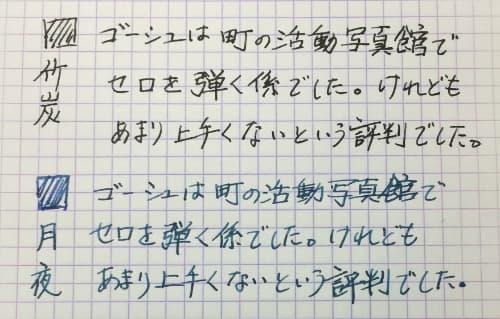 竹炭
ゴーシュは町の活動写真館で
セロを弾く係でした。けれども
あまり上手くないという評判でした。
月夜
ゴーシュは町の活動写真館で
セロを弾く係でした。けれども
あまり上手くないという評判でした。